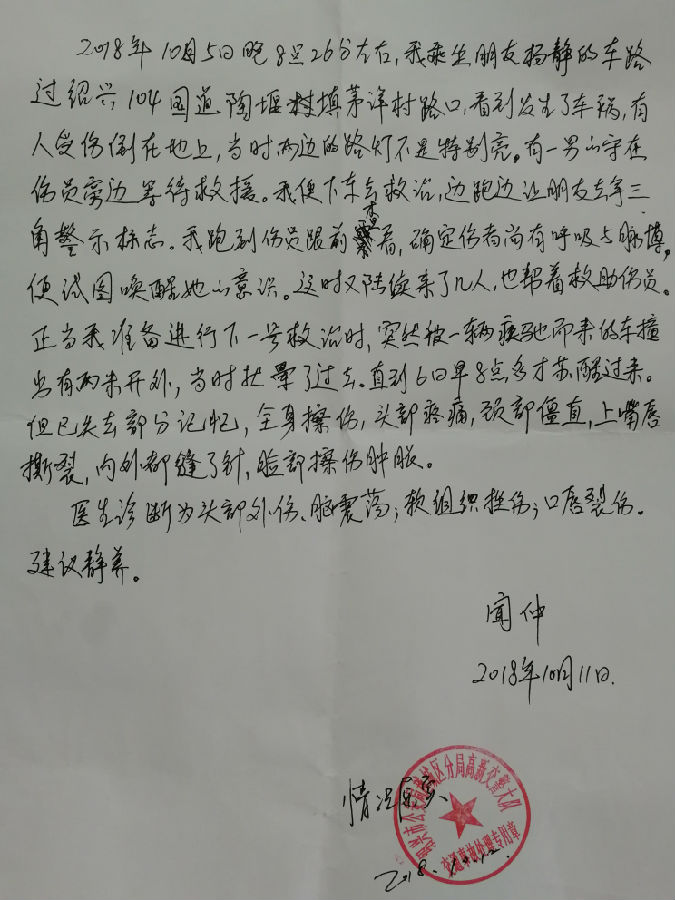 2018年10月5日晚8点26分左右，我乘坐朋友杨静的车路
过绍兴104国道陶堰镇茅洋村路口，看到发生了车祸，有
人受伤倒在地上，当时两边的路灯不是特别亮。有一男的守在
伤员旁边等待救援。我便下车去救治，边跑边让朋友去拿三
角警示标志。我跑到伤员跟前查看，确定伤者尚有呼吸与脉博，
便试图唤醒她的意识。这时又陆续来了几人，也帮着救助伤员。
正当我准备进行下一步救治时，突然被一辆疾驰而来的车撞
出有两米开外，当时就晕了过去。直到6日早8点多才苏醒过来。
但已失去部分记忆，全身擦伤，头部疼痛，颈部僵直，上嘴唇
撕裂，内外都缝了针，脸部擦伤肿胀。
医生诊断为头部外伤、脑震荡；软组织挫伤；口唇裂伤。
建议静养。
闻仲
2018年10月11日.
情况属实
绍兴市公安局越城区分局高新交警大队
交通事故处理专用章
2018.10.12